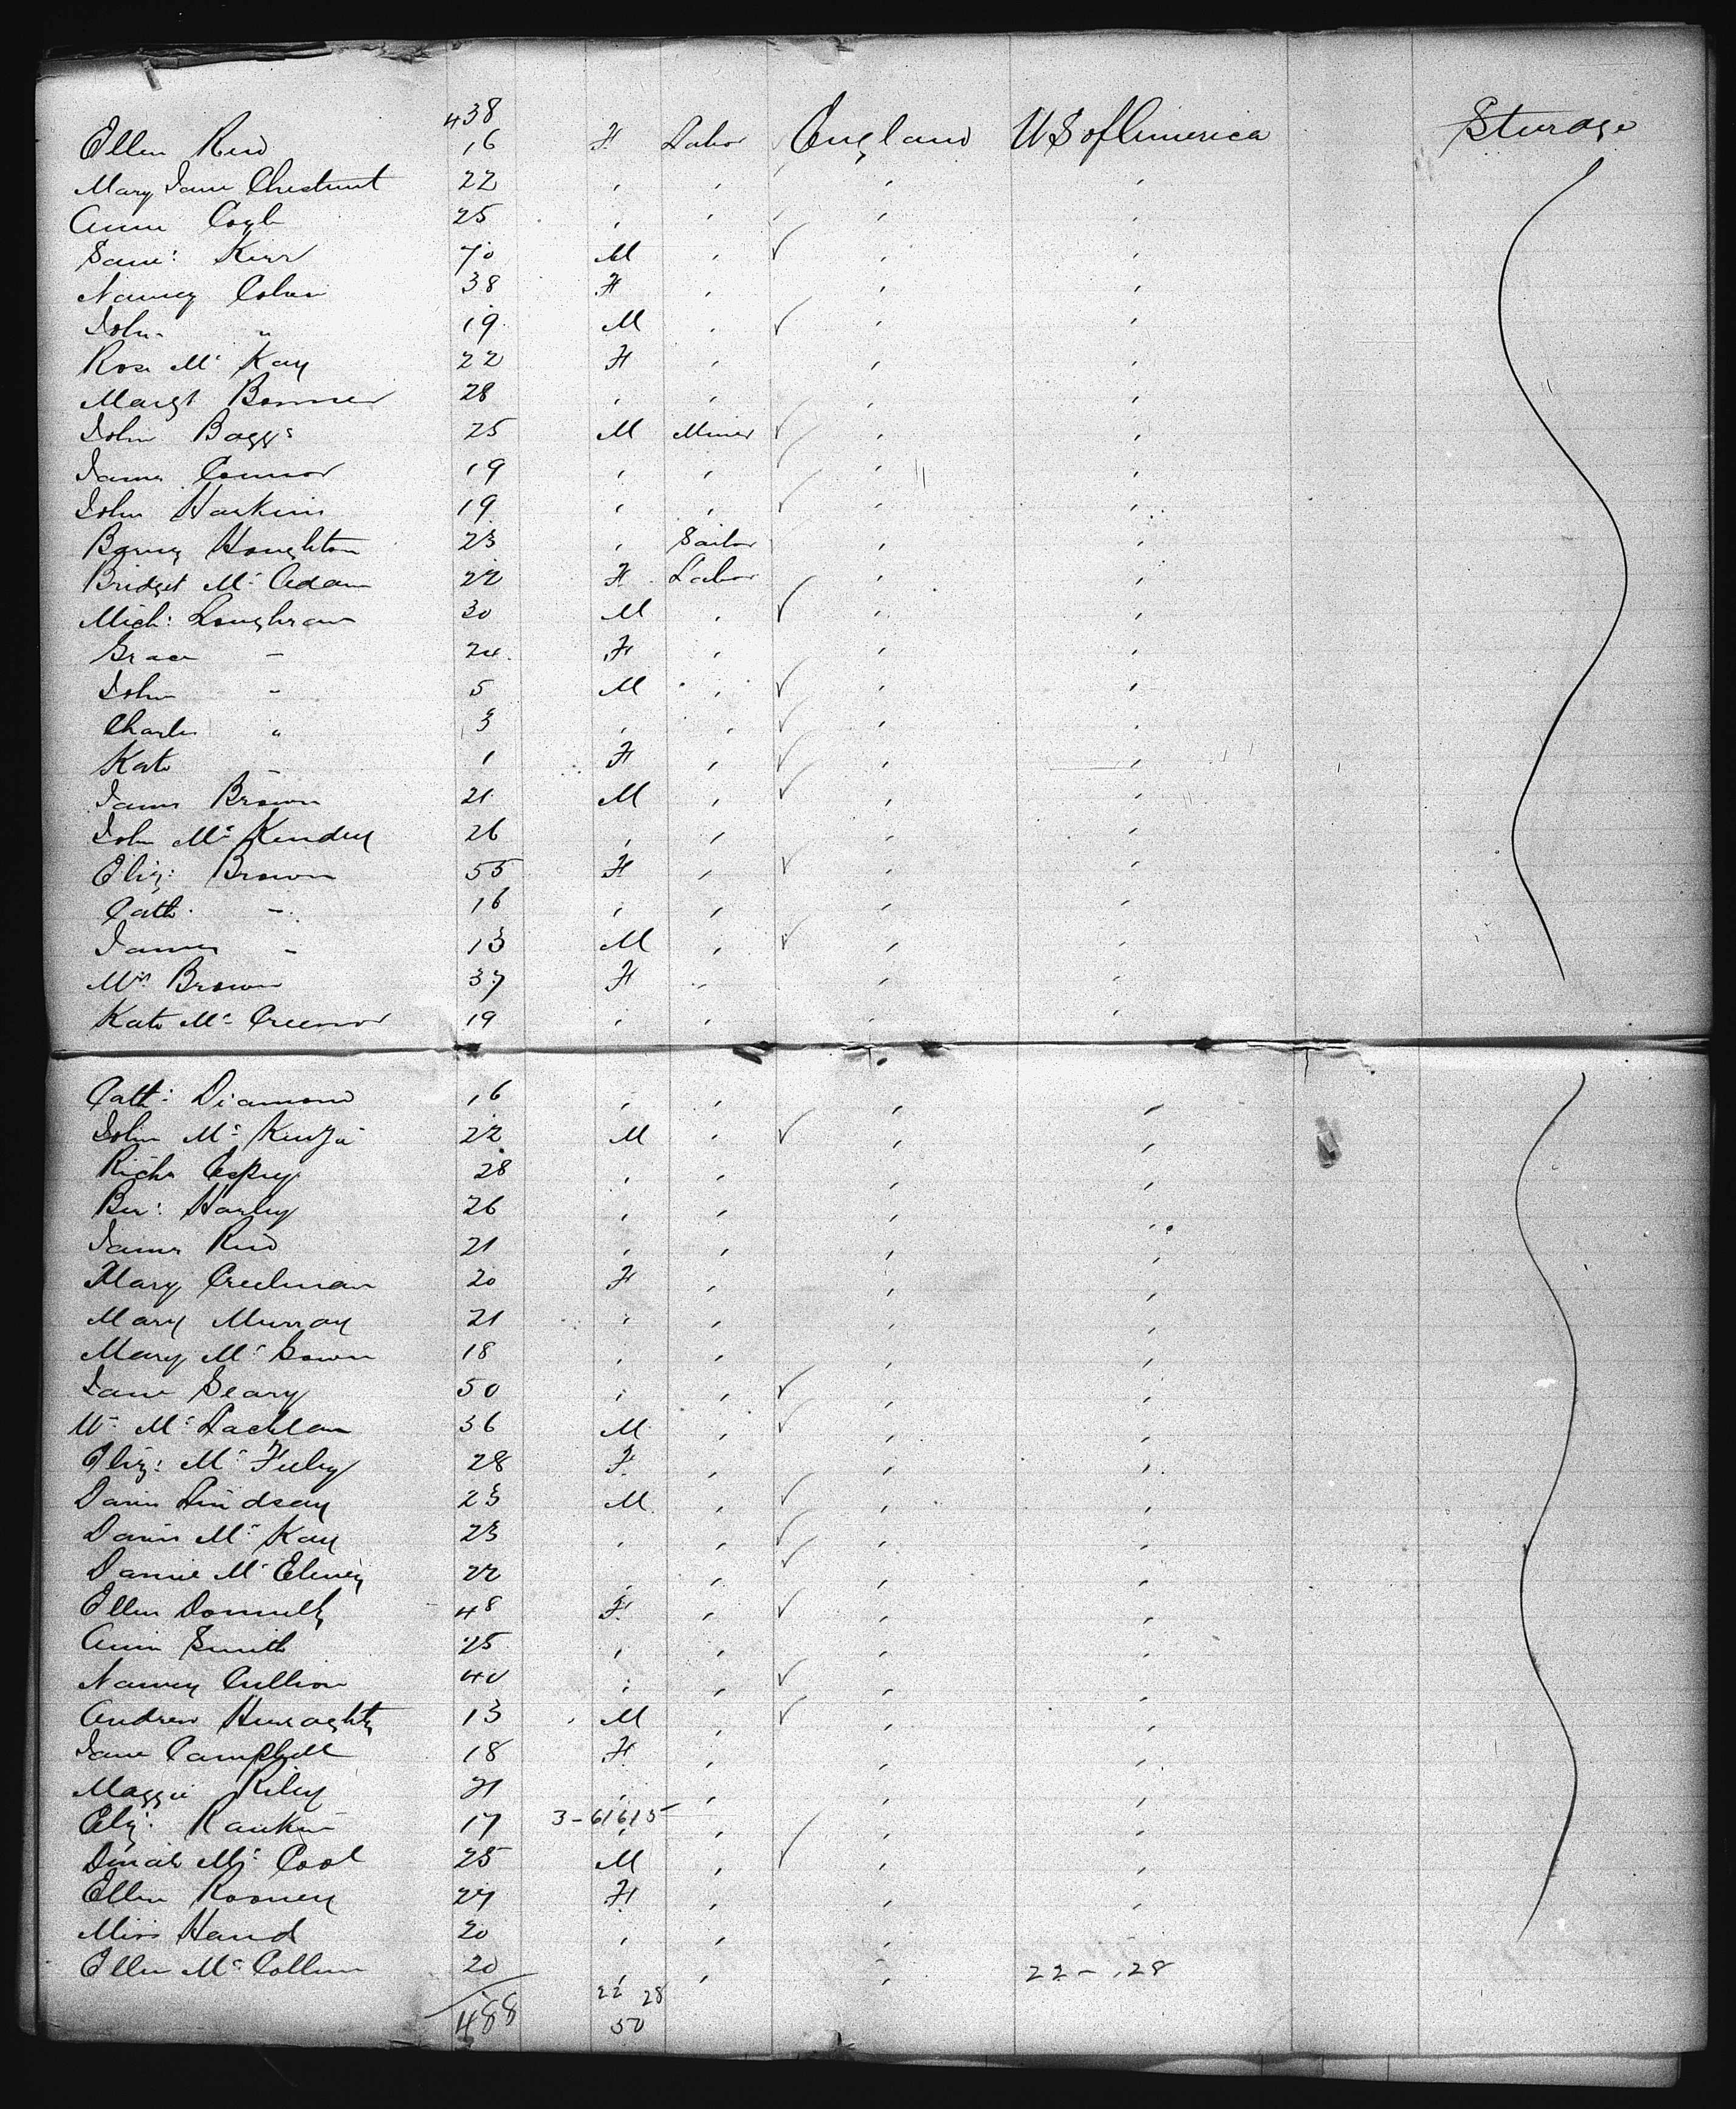 438
Ellen Reid 16 F Labor England U S of America Steerage
Mary Jane Chestnut 22 , , , ,
Annie Coyle 25 , , , ,
Saml: Kerr 70 M , , ,
Nancy Colvin 38 F , , ,
John " 19 M , , ,
Rose Mc Kay 22 F , , ,
Margt Bonner 28 , , , ,
John Boggs 25 M Miner , ,
James Connor 19 , , , ,
John Harkins 19 , , , ,
Barney Houghton 23 , Sailor , ,
Bridget Mc Adam 22 F Labor , ,
Mich: Loughran 30 M , , ,
Grace " 24 F , , ,
John " 5 M , , ,
Charles " 3 , , , ,
Kate 1 F , , ,
James Brown 21 M , , ,
John Mc Kendry 26 , , , ,
Eliz: Brown 55 F , , ,
Cath. " 16 , , , ,
James " 13 M , , ,
Mrs Brown 37 F , , ,
Kate Mc 19 , , , ,
Cath: Diamond 16 , , , ,
John Mc Kenzie 22 M , , ,
Richd Espey 28 , , , ,
Ber: Harley 26 , , , ,
James Reid 21 , , , ,
Mary Creelman 20 F , , ,
Mary Murray 21 , , , ,
Mary Mc Gowan 18 , , , ,
Jane Geary 50 , , , ,
Wm Mc Lachlan 36 M , , ,
Eliz: Mc Feeley 28 F , , ,
David Lindsay 23 M , , ,
David Mc Kay 23 , , , ,
Mc Elwee 22 , , , ,
Ellen Donnelly 48 F , , ,
Ann Smith 25 , , , ,
Nancy Cullion 40 , , , ,
Andrew Heraghty 13 M , , ,
Jane Campbell 18 F , , ,
Maggie Riley 21 , , , ,
Eliz: Rankin 17 3-61615 , , , ,
Mc Cool 25 M , , ,
Ellen Rooney 27 F , , ,
Miss Hand 20 , , ,
Ellen Mc Collum 20 , , , 22 - 28
22 28
488 50